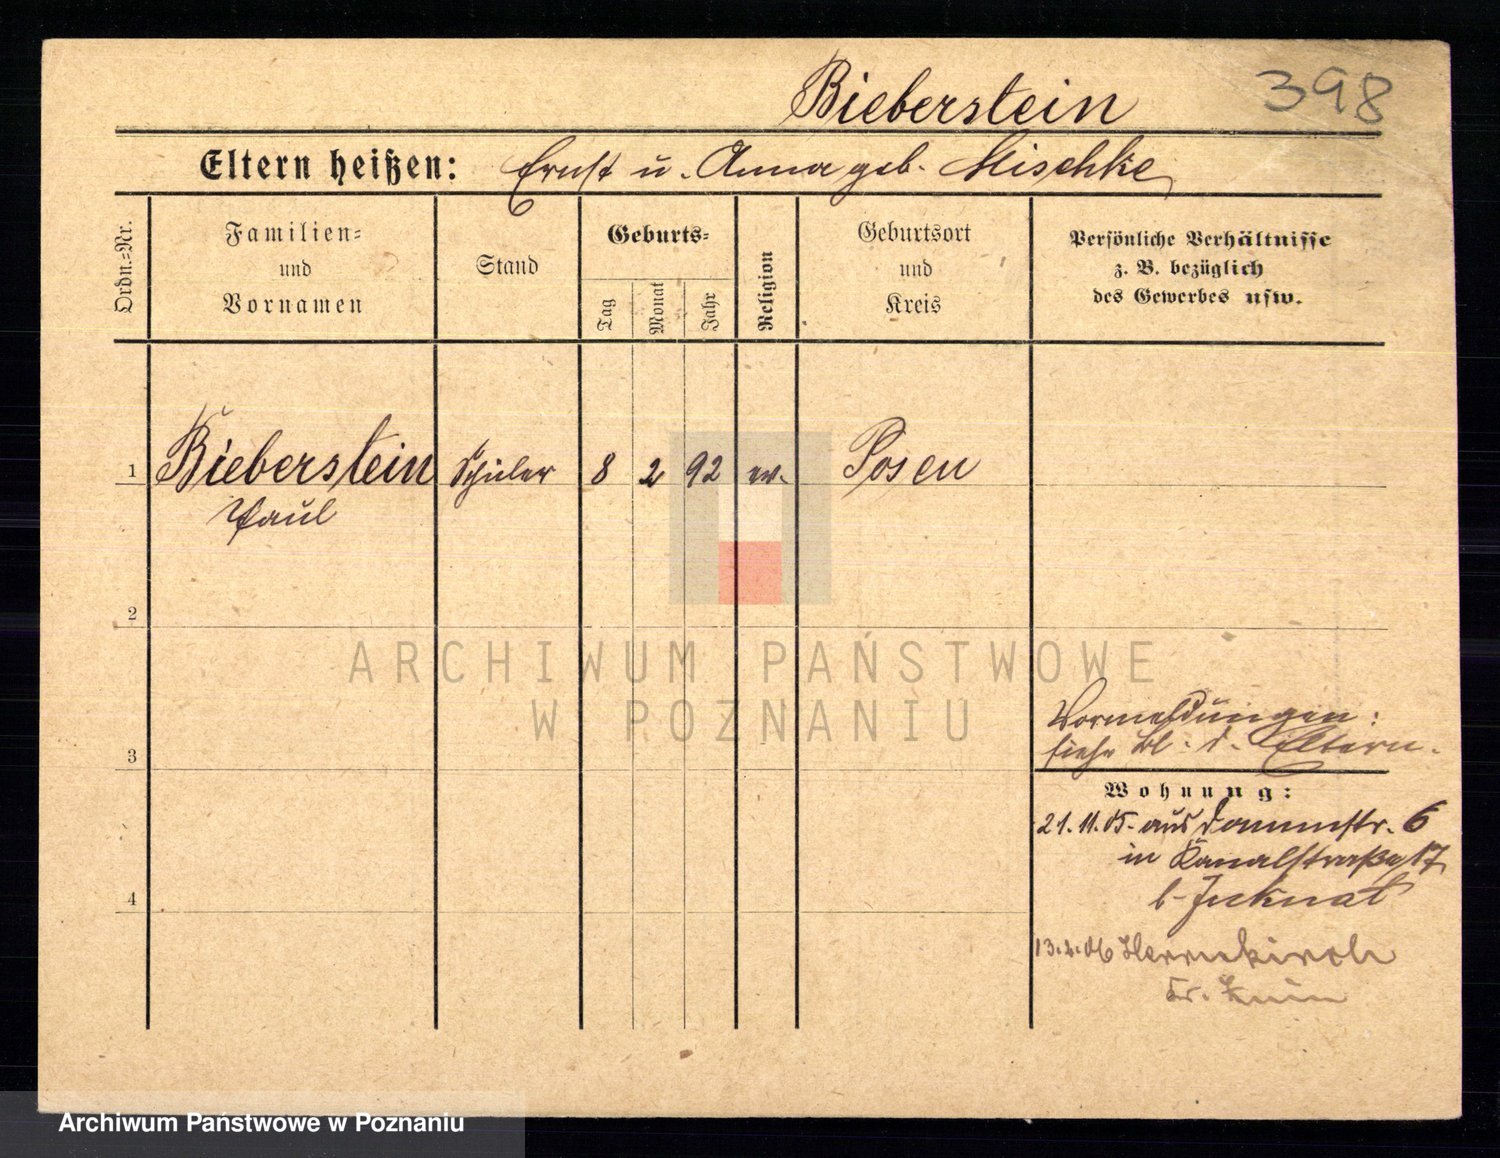 Bieberstein
398
Eltern heißen: Ernst u. Anna geb. Mischke
Ordn.=Nr.
Familien=
und
Vornamen
Stand
Geburts=
Tag
Monat
Jahr
Religion
Geburtsort
und
Kreis
Persönliche Verhältnisse
z. B. bezüglich
des Gewerbes usw.
1 Bieberstein Schüler 8 2 92 ev. Posen
Paul
2
ARCHIWUM PAŃSTWOWE
W POZNANIU
Vormeldungen:
siehe Bl. d. Eltern.
3
Wohnung:
21.11.05. aus Dammstr. 6
in Kanalstraße 17
b. Juknat
4
13.2.06 Herrnkirch
Kr. Znin
Archiwum Państwowe w Poznaniu